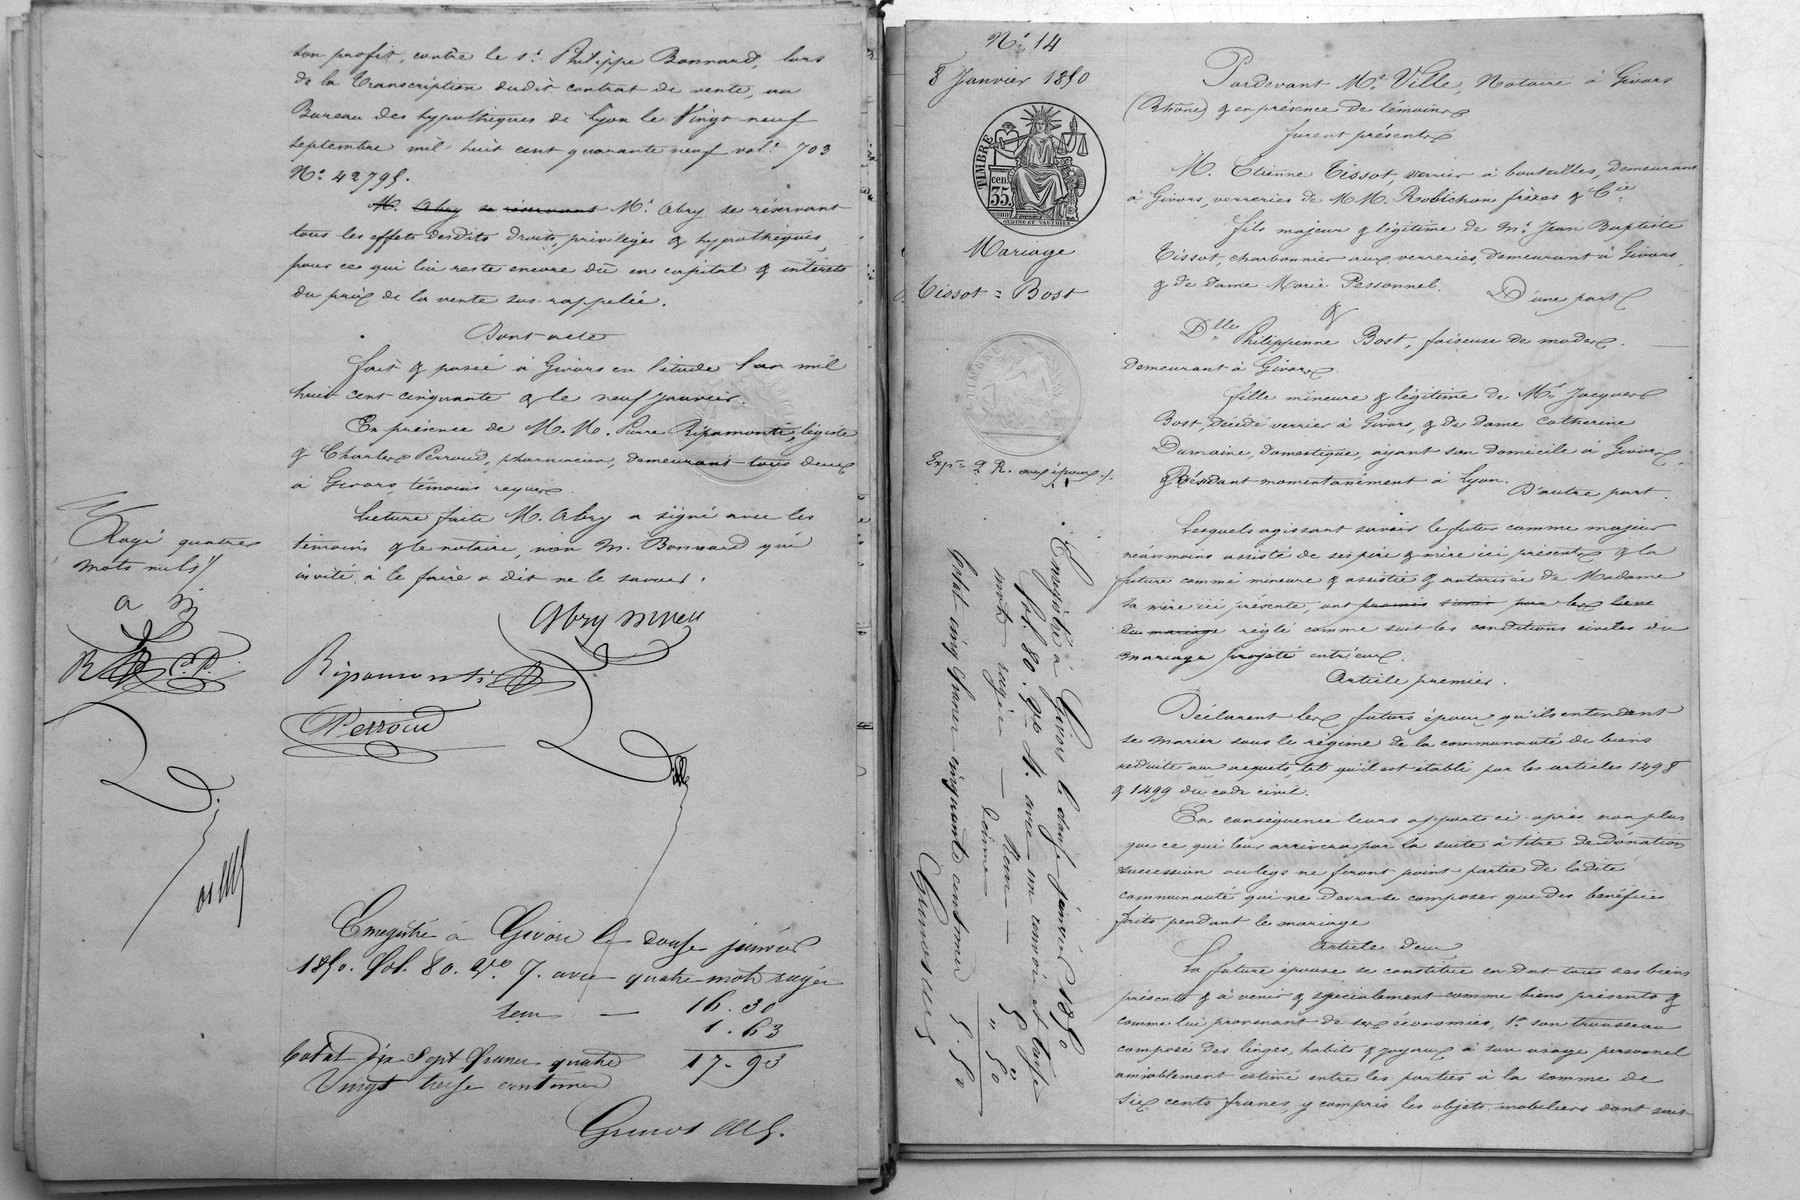 son profit, contre le Sr. Philippe Bonnard, lors
de la transcription dudit contrat de vente, au
Bureau des hypothèques de Lyon le Vingt neuf
septembre mil huit cent quarante neuf vol. 703
No. 42795.
M. Abry se réservant Mr. Abry se réservant
tous les effets desdits droits, privilèges & hypothèques,
pour ce qui lui reste encore dû en capital & intérêts
du prix de la vente sus-rappelée.
Dont acte
fait & passé à Givors en l'étude l'an mil
huit cent cinquante & le neuf janvier.
En présence de M.M. Pierre Ripamonti, légiste
& Charles Perroud, pharmacien, demeurant tous deux
à Givors, témoins requis.
Lecture faite M. Abry a signé avec les
témoins & le notaire, non M. Bonnard qui
invité à le faire a dit ne le savoir.
Rayé quatre
mots nuls
R C.P.
Abry
Ripamonti
Perroud
Enregistré à Givors le douze janvier
1850. fol. 80. Vo. 7. avec quatre mots rayés
16.30
1.63
Total dix Sept francs quatre 17-93
Vingt treize centimes
No. 14
8 Janvier 1850
TIMBRE
cen.
35
Mariage
Tissot = Bost
Enregistré à Givors le douze janvier 1850
fol. 80. Vo. 4. avec un renvoi et
mots rayés
Décime " 50
Total cinq francs cinquante centimes 5.50
Pardevant Me. Ville, Notaire à Givors
(Rhône) & en présence de témoins
furent présents
M. Etienne Tissot, verrier à bouteilles, demeurant
à Givors, verreries de M.M. Robichon frères & Cie
fils majeur & légitime de Mr. Jean Baptiste
Tissot, charbonnier aux verreries, demeurant à Givors,
& de dame Marie Pessonnel. D'une part
&
Dlle Philippinne Bost, faiseuse de modes,
demeurant à Givors.
fille mineure & légitime de Mr. Jacques
Bost, décédé verrier à Givors, & de dame Catherine
Dumaine, domestique, ayant son domicile à Givors,
& Résidant momentanément à Lyon. D'autre part.
Lesquels agissant savoir le futur comme majeur
néanmoins assisté de ses père & mère ici présents & la
future comme mineure & assistée & autorisée de Madame
sa mère ici présente, ont promis s'unir par les liens
du mariage réglé comme suit les conditions civiles du
mariage projeté entr'eux.
Article premier.
Déclarent les futurs époux qu'ils entendent
se marier sous le régime de la communauté de biens
réduite aux acquets, tel qu'il est établi par les articles 1498
& 1499 du code civil.
En conséquence leurs apports ci-après non plus
que ce qui leur arrivera par la suite à titre de donation
succession ou legs ne feront point partie de ladite
communauté qui ne devra se composer que des bénéfices
faits pendant le mariage
Article deux
La future épouse se constitue en dot tous ses biens
présents & à venir & spécialement comme biens présents &
comme lui provenant de ses économies, 1o. son trousseau
composé des linges, habits & joyaux à son usage personnel
amiablement estimé entre les parties à la somme de
six cents francs, y compris les objets mobiliers dont suit